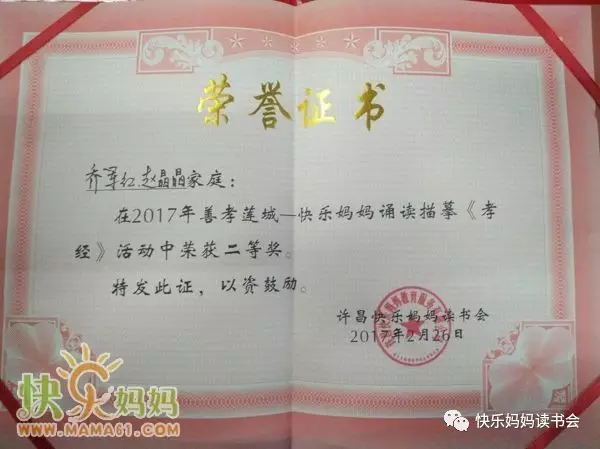 荣誉证书
乔军红.赵晶晶家庭：
在2017年善孝莲城—快乐妈妈诵读描摹《孝
经》活动中荣获二等奖。
特发此证，以资鼓励。
许昌快乐妈妈读书会
2017年2月26日
快乐妈妈
WWW.MAMA61.COM
快乐妈妈读书会